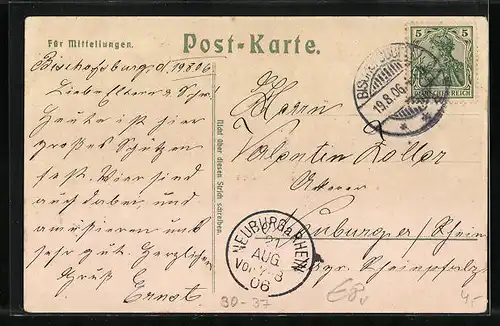 Für Mitteilungen.
Post-Karte.
Bischofsburg, d. 19.8.06
Liebe Eltern &
Heute ist hier
großes Schützen
fest. Wir sind
auf dabei und
amüsieren uns
sehr gut. Herzlichen
Gruß Ernst
Nicht über diesen Strich schreiben.
5 5
DEUTSCHES REICH
19.8.06
Herrn
Valentin Zoller
Neuburg a/Rhein
Rheinpfalz
NEUBURG a. RHEIN
21
AUG.
Vor. 7-8
06
30-37